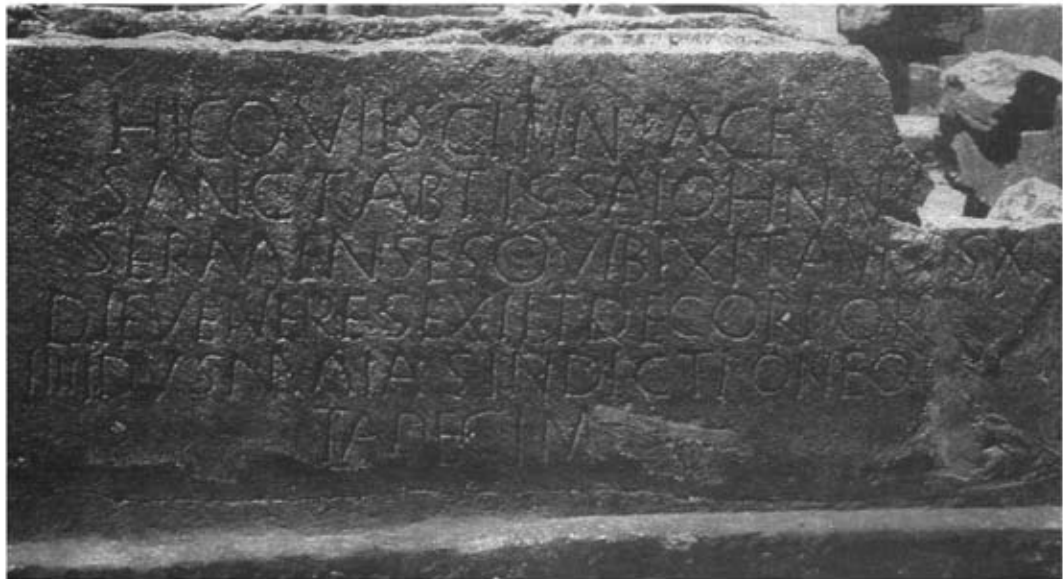 HIC QVIISCIT IN PACE
SANCTA ABTISSA IOHNN
QVI BIXIT
DIE VENERES EXIET DE CORPOR
IIII IDVS MAIAS INDICTIONE
TADECIM